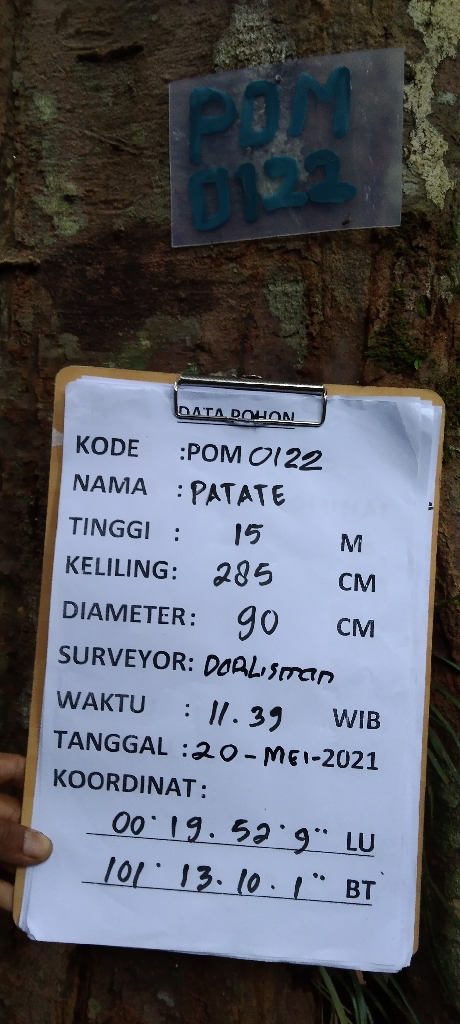 POM
0122
DATA POHON
KODE :POM 0122
NAMA : PATATE
TINGGI : 15 M
KELILING: 285 CM
DIAMETER: 90 CM
SURVEYOR: DORLisman
WAKTU : 11.39 WIB
TANGGAL :20-MEI-2021
KOORDINAT:
00° 19. 52' 9" LU
101° 13. 10. 1" BT